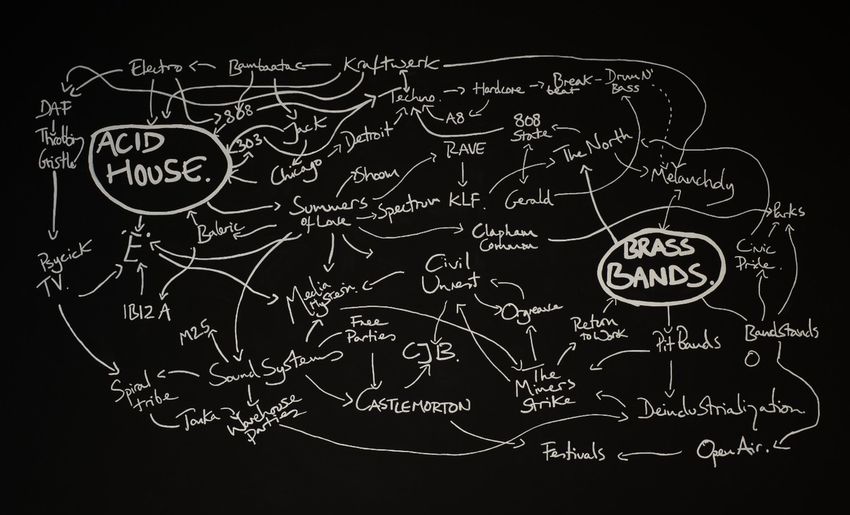 Electro
Bambaataa
Kraftwerk
DAF
808
Techno.
Hardcore
Break
beat
Drum N'
Bass
Throbbing
Gristle
ACID
HOUSE.
303
Jack
Detroit
A8
808
State
The North
Chicago
RAVE
Melancholy
Shoom
Summers
of Love
Spectrum
KLF.
Gerald
Parks
Baleric
Clapham
Common
Psychick
TV.
'E'.
BRASS
BANDS.
Civic
Pride.
IBIZA
Media
Hysteria
Civil
Unrest
Orgreave
M25
Free
Parties
CJB.
Return
to Work
Pit Bands
Bandstands
Spiral
tribe
Sound Systems
The
Miners
Strike
Tonka
Warehouse
Parties
CASTLEMORTON
Deindustrialization
Festivals
Open Air.